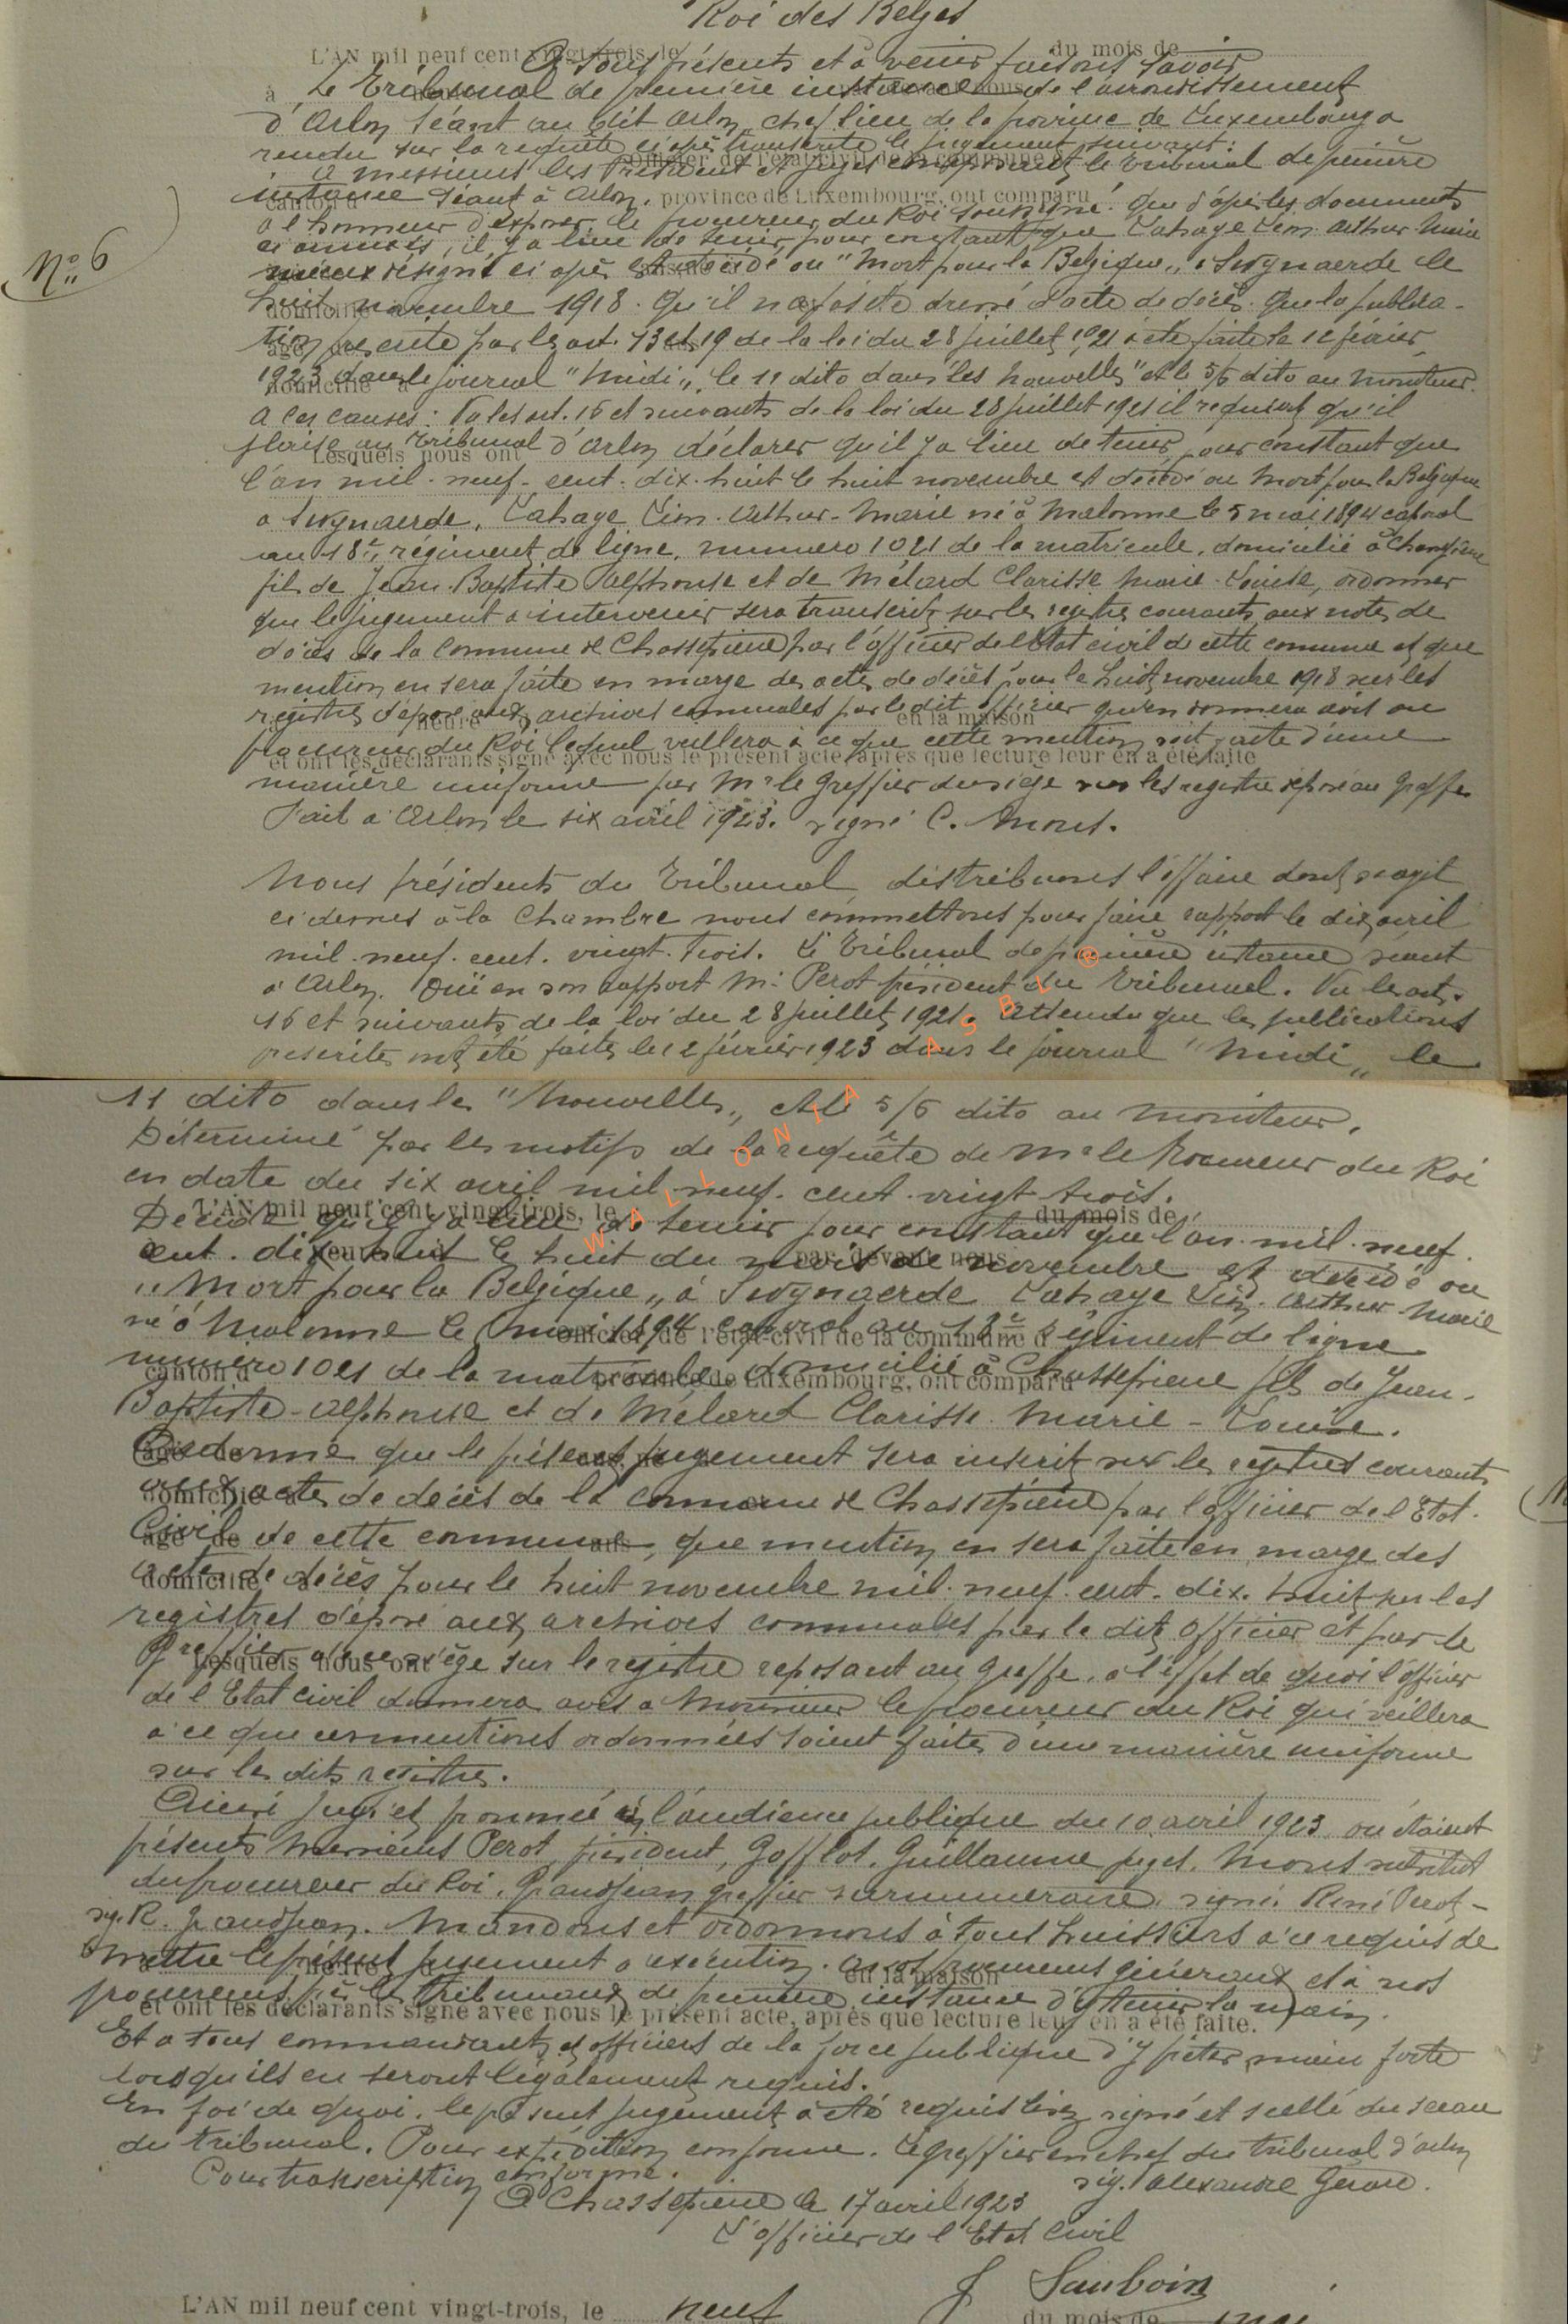 Roi des Belges
L'AN mil neuf cent vingt-trois, le du mois de
A tous présents et à venir faisons savoir
Le Tribunal de première instance de l'arrondissement
d'Arlon séant au dit Arlon, chef lieu de la province de Luxembourg a
rendu sur la requête ci après transcrite le jugement suivant:
officier de l'état civil de la commune d
A messieurs les Président et Juges composant le Tribunal de première
canton d province de Luxembourg, ont comparu
instance séant à Arlon.
a l'honneur d'exposer le procureur du Roi soussigné que d'après les documents
ci annexés, il y a lieu de tenir pour constant que Lahaye Léon Arthur Marie
mieux désigné ci après est décédé ou "Mort pour la Belgique" à Swynaerde le
N° 6
huit novembre 1918. Qu'il n'a pas été dressé d'acte de décès. Que la publica-
tion prescrite par les art. 13 et 19 de la loi du 28 juillet 1921 a été faite le 12 février
1923 dans le journal "Midi", le 11 dito dans les nouvelles" et le 5/6 dito au moniteur.
A ces causes: Vu les art. 16 et suivants de la loi du 28 juillet 1921 il requiert qu'il
plaise au Tribunal d'Arlon déclarer qu'il y a lieu de tenir pour constant que
Lesquels nous ont
l'an mil-neuf-cent-dix-huit le huit novembre est décédé ou mort pour la Belgique
à Swynaerde, Lahaye Léon-Arthur-Marie né à Malonne le 5 mai 1894 caporal
au 18e régiment de ligne, numéro 1021 de la matricule, domicilié à Chassepierre
fils de Jean-Baptiste Alphonse et de Mélard Clarisse Marie-Louise, ordonner
que le jugement à intervenir sera transcrit sur les registres courants aux notes de
décès de la commune de Chassepierre par l'officier de l'Etat civil de cette commune et que
mention en sera faite en marge des actes de décès pour le huit novembre 1918 sur les
registres déposé aux archives communales par le dit officier qu'en donnera avis au
heure en la maison
procureur du Roi lequel veillera à ce que cette mention soit faite d'une
et ont les déclarants signé avec nous le présent acte, après que lecture leur en a été faite
manière uniforme par Mr le Greffier du siège sur les registre déposé au Greffe
Fait à Arlon le six avril 1923. signé C. Mons.
Nous présidents du Tribunal distribuons l'affaire dont s'agit
ci dessus à la Chambre nous commettons pour faire rapport le dix avril
mil-neuf-cent-vingt-trois. Le Tribunal de première instance séant
à Arlon. Ouï en son rapport Mr Perot président du Tribunal. Vu les art.
16 et suivants de la loi du 28 juillet 1921. Attendu que les publications
prescrites ont été faites le 12 février 1923 dans le journal "Midi" le
11 dito dans les "Nouvelles", et le 5/6 dito au moniteur.
WALLONIA ASBL ®
Déterminé par les motifs de la requête de Mr le Procureur du Roi
en date du six avril mil-neuf-cent-vingt trois.
L'AN mil neuf cent vingt-trois, le du mois de
Décide qu'il y a lieu de tenir pour constant que l'an-mil-neuf-
par devant nous
cent-dix huit le huit du mois de novembre est décédé ou
"Mort pour la Belgique" à Swynaerde Lahaye Léon Arthur Marie
né à Malonne le 5 mai 1894 caporal au 18e régiment de ligne
officier de l'état civil de la commune d
numéro 1021 de la matricule domicilié à Chassepierre fils de Jean-
canton d province de Luxembourg, ont comparu
Baptiste-Alphonse et de Mélard Clarisse Marie-Louise.
âgé de
Ordonne que le présent jugement sera inscrit sur les registres courants
domicilié à
aux actes de décès de la commune de Chassepierre par l'officier de l'Etat-
âgé de ans
Civil de cette commune, que mention en sera faite en marge des
domicilié à
actes de décès pour le huit novembre mil-neuf-cent-dix-huit sur les
registres déposé aux archives communales par le dit officier et par le
Lesquels nous ont
Greffier de ce siège sur le registre reposant au greffe, à l'effet de quoi l'officier
de l'Etat civil donnera avis à Monsieur le procureur du Roi qui veillera
à ce que ces mentions ordonnées soient faites d'une manière uniforme
sur les dits registres.
Ainsi jugé et prononcé à l'audience publique du 10 avril 1923 où étaient
présents messieurs Perot, président, Gofflot, Guillaume juges, Mons substitut
du procureur du Roi, Grandjean greffier surnuméraire, signé. René Perot-
sig. R. Grandjean. Mandons et ordonnons à tous huissiers à ce requis de
mettre le présent jugement à exécution. à nos procureurs généraux et à nos
heure en la maison
procureurs près les tribunaux de première instance d'y tenir la main.
et ont les déclarants signé avec nous le présent acte, après que lecture leur en a été faite.
Et à tous commandants et officiers de la force publique d'y prêter main forte
lorsqu'ils en seront légalement requis.
En foi de quoi, le présent jugement a été signé et scellé du sceau
du tribunal. Pour expédition conforme. Le greffier en chef du tribunal d'Arlon
Pour transcription conforme. sig. Alexandre Gérard.
A Chassepierre le 17 avril 1923
L'officier de l'Etat Civil
J Sauboin
L'AN mil neuf cent vingt-trois, le neuf du mois de mai